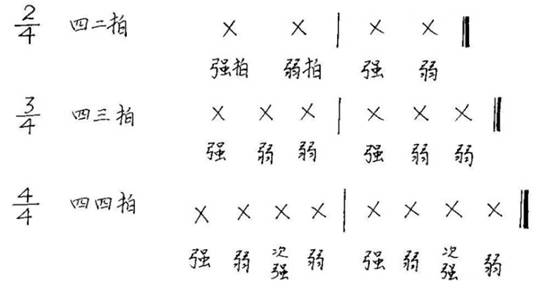 2/4 四二拍 × × | × × ‖
强拍 弱拍 强 弱
3/4 四三拍 × × × | × × × ‖
强 弱 弱 强 弱 弱
4/4 四四拍 × × × × | × × × × ‖
强 弱 次强 弱 强 弱 次强 弱